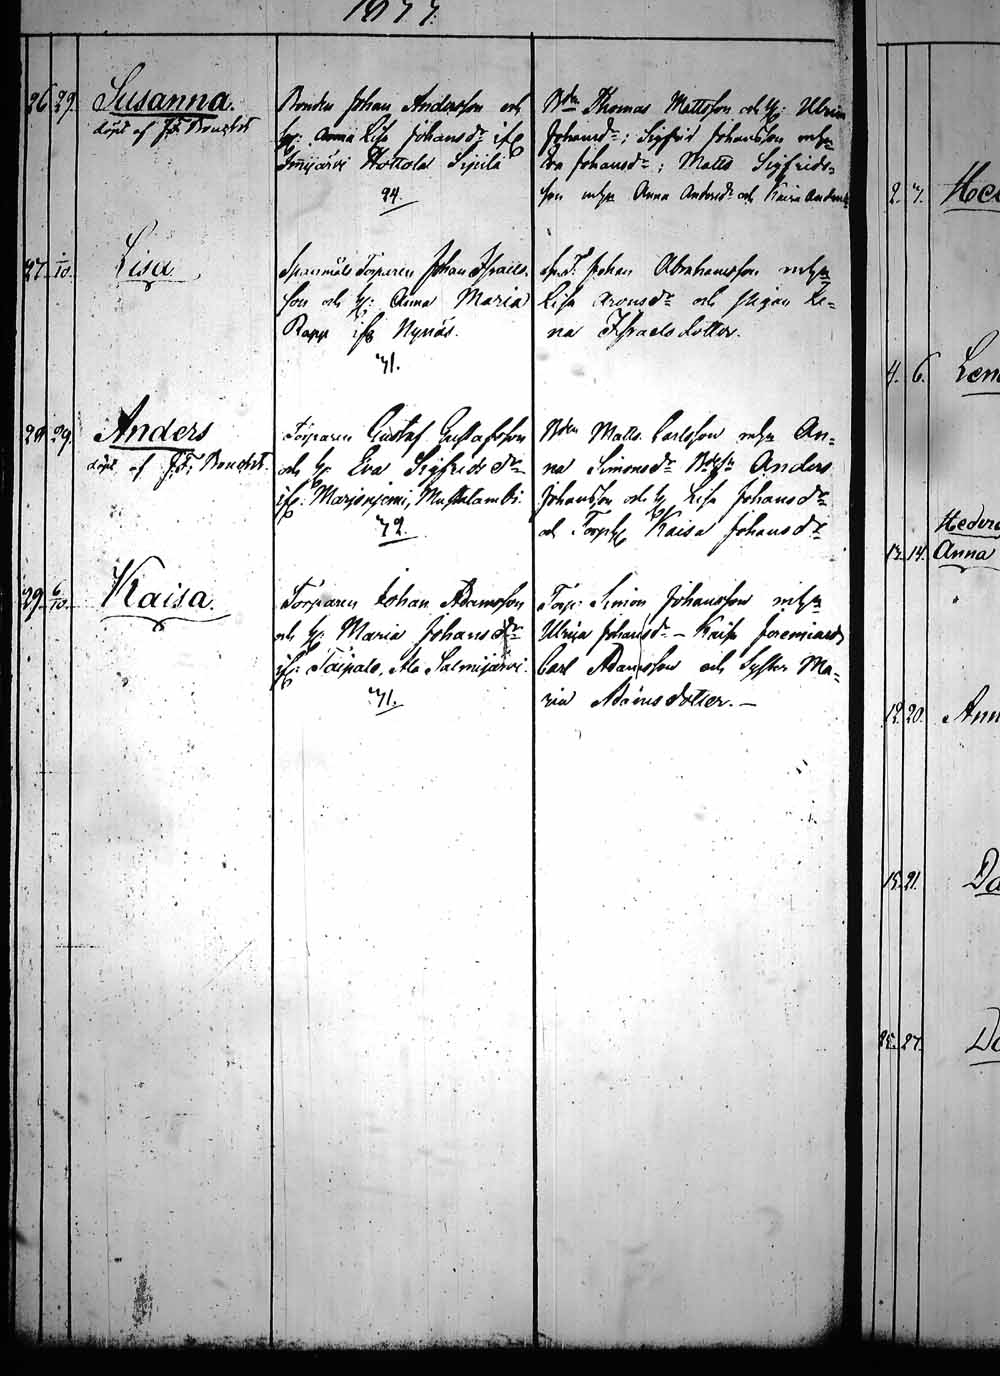 1877.
26 29. Susanna.
döpt af J. F. Bonsdorff
Bonden Johan Andersson och
h. Anna Lisa Johansdr ifr
Immjärvi Hottola Seppilä
24.
Bdn Thomas Mattsson och h. Ulrica
Johansdr; Sigfrid Johansson m h
Eva Johansdr; Matts Sigfrids-
son m h Anna Andersdr och Kaisa Andersdr
27. 1/10. Lisa.
Spanmåls Torparen Johan Israels-
son och h. Anna Maria
Rapp ifr Nynäs.
41.
Sp. T. Johan Abrahamsson m h
Lisa Aronsdr och pigan Le-
na Israelsdotter.
28 29. Anders
döpt af J. F. Bonsdorff.
Torparen Gustaf Gustafsson
och h. Eva Sigfridsdr
ifr. Marjoniemi, Mustalambi.
42.
Bdn Matts Carlsson m h An-
na Simonsdr Bdsn Anders
Johansson och h Lisa Johansdr
och Torph Kaisa Johansdr
29. 6/10. Kaisa.
Torparen Johan Adamsson
och h. Maria Johansdr
ifr. Taipale, Ala Salmijärvi.
41.
Torp. Simon Johansson m h
Ulrica Johansdr - Kaisa Jeremiasdr
Carl Adamsson och Syster Ma-
ria Adamsdotter. -
2. 7. Hed
4. 6. Lena
Hedvig
13. 14. Anna
12. 20. Ann
15. 21. Da
25. 27. Da